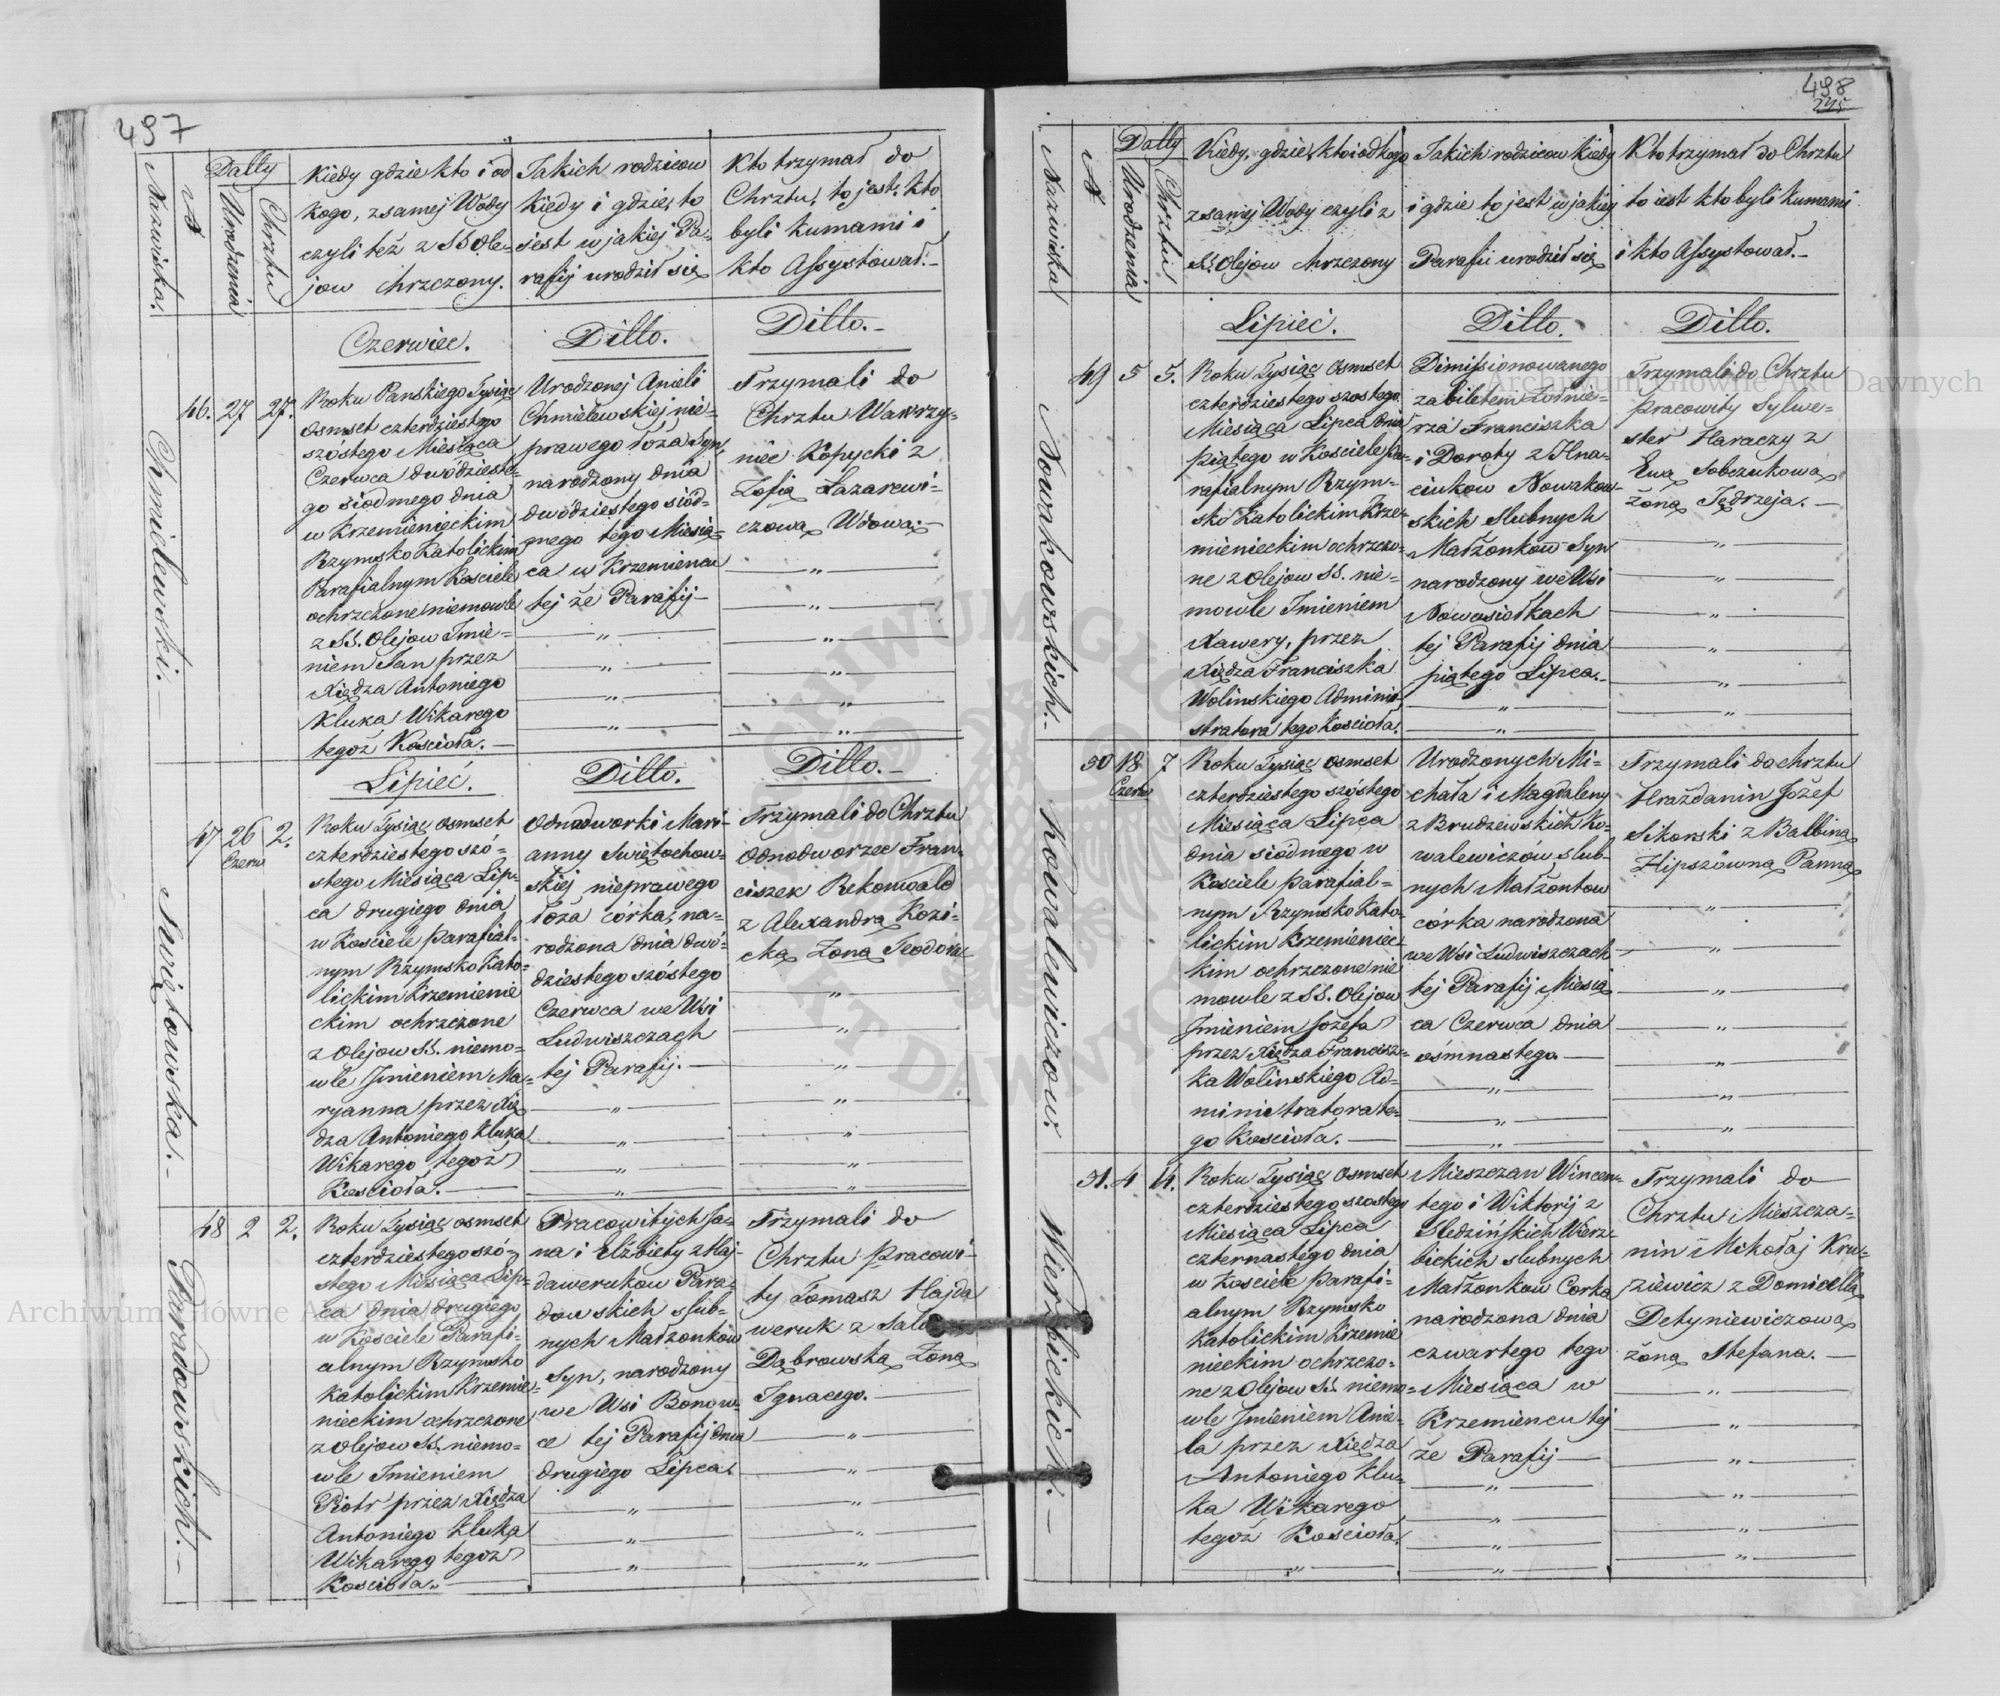 497
Nazwiska.
N
Datty
Urodzenia
Chrztu
Kiedy gdzie kto i od
kogo, z samej Wody
czyli też z SS Ole-
jow chrzczony.
Jakich rodzicow
kiedy i gdzie, to
jest w jakiej Pa-
rafij urodził się
Kto trzymał do
Chrztu, to jest, kto
byli kumami i
kto Assystował.-
Czerwiec.
Ditto.
Ditto.-
Chmielewski.
46. 27 27.
Roku Panskiego Tysiąc
osmset czterdziestego
szóstego Miesiąca
Czerwca dwódzieste-
go siodmego dnia
w Krzemienieckim
Rzymsko Katolickim
Parafialnym Kosciele
ochrzczone niemowle
z SS. Olejow Imie=
niem Jan przez
Xiędza Antoniego
Kluka Wikarego
tegoż Koscioła.-
Urodzonej Anieli
Chmielewskiej nie-
prawego łoża Syn,
narodzony dnia
dwódziestego siód-
mego tego Miesią-
ca w Krzemiencu
tej że Parafij-
Trzymali do
Chrztu Wawrzy-
niec Kopycki z
Zofią Łazarewi-
czową Wdową-
Lipieć.
Ditto.
Ditto.-
Swiętochowska.-
47 26 2.
Czerw
Roku Tysiąc osmset
czterdziestego szó-
stego Miesiąca Lip-
ca drugiego dnia
w Kosciele Parafial-
nym Rzymsko Kato-
lickim Krzemienie
ckim ochrzczone
z Olejow SS. niemo-
wle Imieniem Ma-
ryanna przez Xię
dza Antoniego Kluka
Wikarego tegoż
Kosciola.-
Odnodworki Mari-
anny Swiętochow-
skiej nieprawego
łoża córka, na-
rodzona dnia dwó-
dziestego szóstego
Czerwca we Wsi
Ludwiszczach
tej Parafij.-
Trzymali do Chrztu
Odnodworzec Fran-
ciszek Rekonwald
z Alexandrą Kozi-
cką Zoną Teodora
Paradowskich.-
48 2 2.
Roku Tysiąc osmset
czterdziestego szó-
stego Miesiąca Lip-
ca dnia drugiego
w Kosciele Parafi-
alnym Rzymsko
Katolickim Krzemie-
nieckim ochrzczone
z Olejow SS. niemo-
wle Imieniem
Piotr przez Xiędza
Antoniego Kluka
Wikarego tegoż
Kosciola.
Pracowitych Ja-
na i Elżbiety z Haj-
dawerukow Para-
dowskich slub-
nych Małżonków
Syn, narodzony
we Wsi Bonow-
ce tej Parafij dnia
drugiego Lipca.
Trzymali do
Chrztu pracowi-
ty Tomasz Hajda
weruk z
Dąbrowską Zoną
Ignacego.-
498
Nazwiska
N
Datty
Urodzenia
Chrztu
Kiedy, gdzie, kto i od kogo
z samej Wody czyli z
SS Olejow chrzczony
Jakich rodzicow kiedy
i gdzie to jest w jakiej
Parafii urodził się
Kto trzymał do Chrztu
to iest kto byli Kumami
i kto Assystował.-
Lipieć.
Ditto.
Ditto.
Nowakowskich.-
49 5 5.
Roku Tysiąc osmset
czterdziestego szostego
Miesiąca Lipca dnia
piątego w Kosciele Pa-
rafialnym Rzym-
sko Katolickim Krze-
mienieckim ochrzczo-
ne z Olejow SS. nie-
mowle Imieniem
Xawery, przez
Xiędza Franciszka
Wolinskiego Admini-
stratora tego Kosciola.
Dimissionowanego
za biletem Żołnie-
rza Franciszka
i Doroty z Hna-
ciukow Nowakow-
skich Slubnych
Małżonkow Syn
narodzony we Wsi
Nowosiołkach
tej Parafij dnia
piątego Lipca.
Trzymali do Chrztu
pracowity Sylwe-
ster Haraczy z
Ewą Sobczukową
żoną Jędrzeja.-
Kowalewiczow.
50 18 7
Czerw
Roku Tysiąc osmset
czterdziestego szóstego
Miesiąca Lipca
dnia siódmego w
Kosciele parafial-
nym Rzymsko Kato-
lickim Krzemieniec-
kim ochrzczone nie
mowle z SS. Olejow
Imieniem Jozefa
przez Xiędza Francisz-
ka Wolinskiego Ad-
ministratora te-
go Kosciola.-
Urodzonych Mi-
chała i Magdaleny
z Brudzewskich Ko-
walewiczów slub-
nych Małżonkow
córka narodzona
we Wsi Ludwiszczach
tej Parafij Miesią
ca Czerwca dnia
ośmnastego.-
Trzymali do chrztu
Hraždanin Józef
Sikorski z Balbiną
Hipszówną Panną
Wierzbickich.-
51. 4 14.
Roku Tysiąc osmset
czterdziestego szostego
Miesiąca Lipca
czternastego dnia
w Kosciele parafi-
alnym Rzymsko
Katolickim Krzemie
nieckim ochrzczo-
ne z Olejow SS. niemo-
wle Imieniem Anie-
la przez Xiędza
Antoniego Klu-
ka Wikarego
tegoż Kosciola.
Mieszczan Wincen-
tego i Wiktorij z
Sledzińskich Wierz-
bickich slubnych
Małżonkow Corka
narodzona dnia
czwartego tego
Miesiąca w
Krzemiencu tej
że Parafij-
Trzymali do
Chrztu Mieszcza-
nin Mikołaj Kru-
ziewicz z Domicellą
Detyniewiczową
żoną Stefana.-
Archiwum Główne Akt Dawnych
Archiwum Główne Akt Dawnych
ARCHIWUM GŁÓWNE AKT DAWNYCH